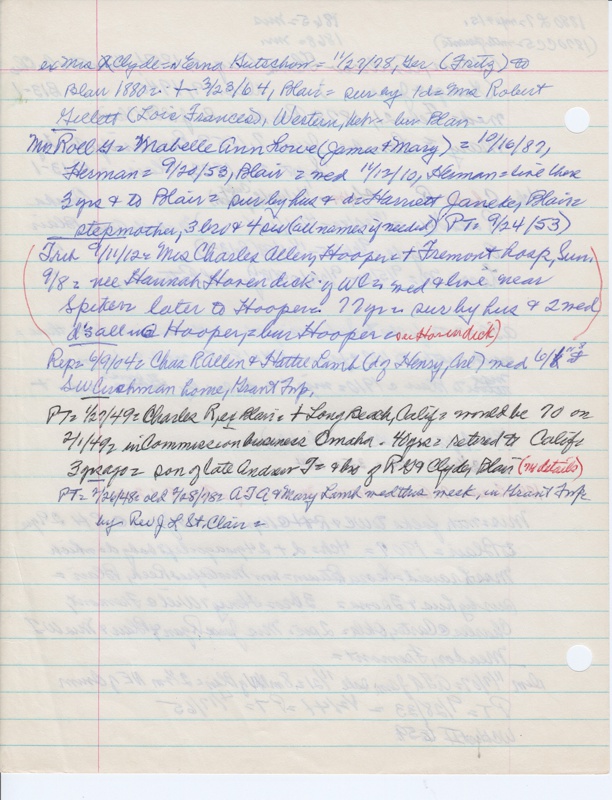 ex Mrs Clyde = Verna Hutschom = 11/27/78, Ger (Fritz) to
Blair 1880 = + 3/23/64, Blair = sur by 1d = Mrs Robert
Gillett (Lois Frances), Western, = bur Blair
Mrs Roll = Mabelle Ann Lowe (James + Mary) = 10/16/87,
Herman = 9/20/53, Blair = med 11/12/10, Herman = live there
3 yrs & to Blair = sur by hus & d = Harriett Blair =
stepmother, 3 bro & 4 sis (all names if needed) PT = 9/24/53)
9/11/12 = Mrs Charles Allen, Hooper = + Fremont hosp, Sun.
9/8 = nee Hannah Havendick of WC = med & live near
later to Hooper = 77 yr = sur by hus & 2 med
d's all @ Hooper = bur Hooper
Rep = 6/9/04 = Chas R Allen & Hattie Lamb (d of Henry, ) med 6/
SW Cushman home, Grant Twp.
PT = 1/27/49 = Charles Rex Blair = + Long Beach, Calif = would be 70 on
2/1/49 = in Commission business Omaha 40 yrs = retired to Calif
3 yrs ago = son of late Andrew T = & bro of R G & Clyde, Blair (no details)
PT = 2/26/48 = old 2/28/78 = A T A & Mary Lamb med this week, in Grant Twp
by Rev J L St. Clair =